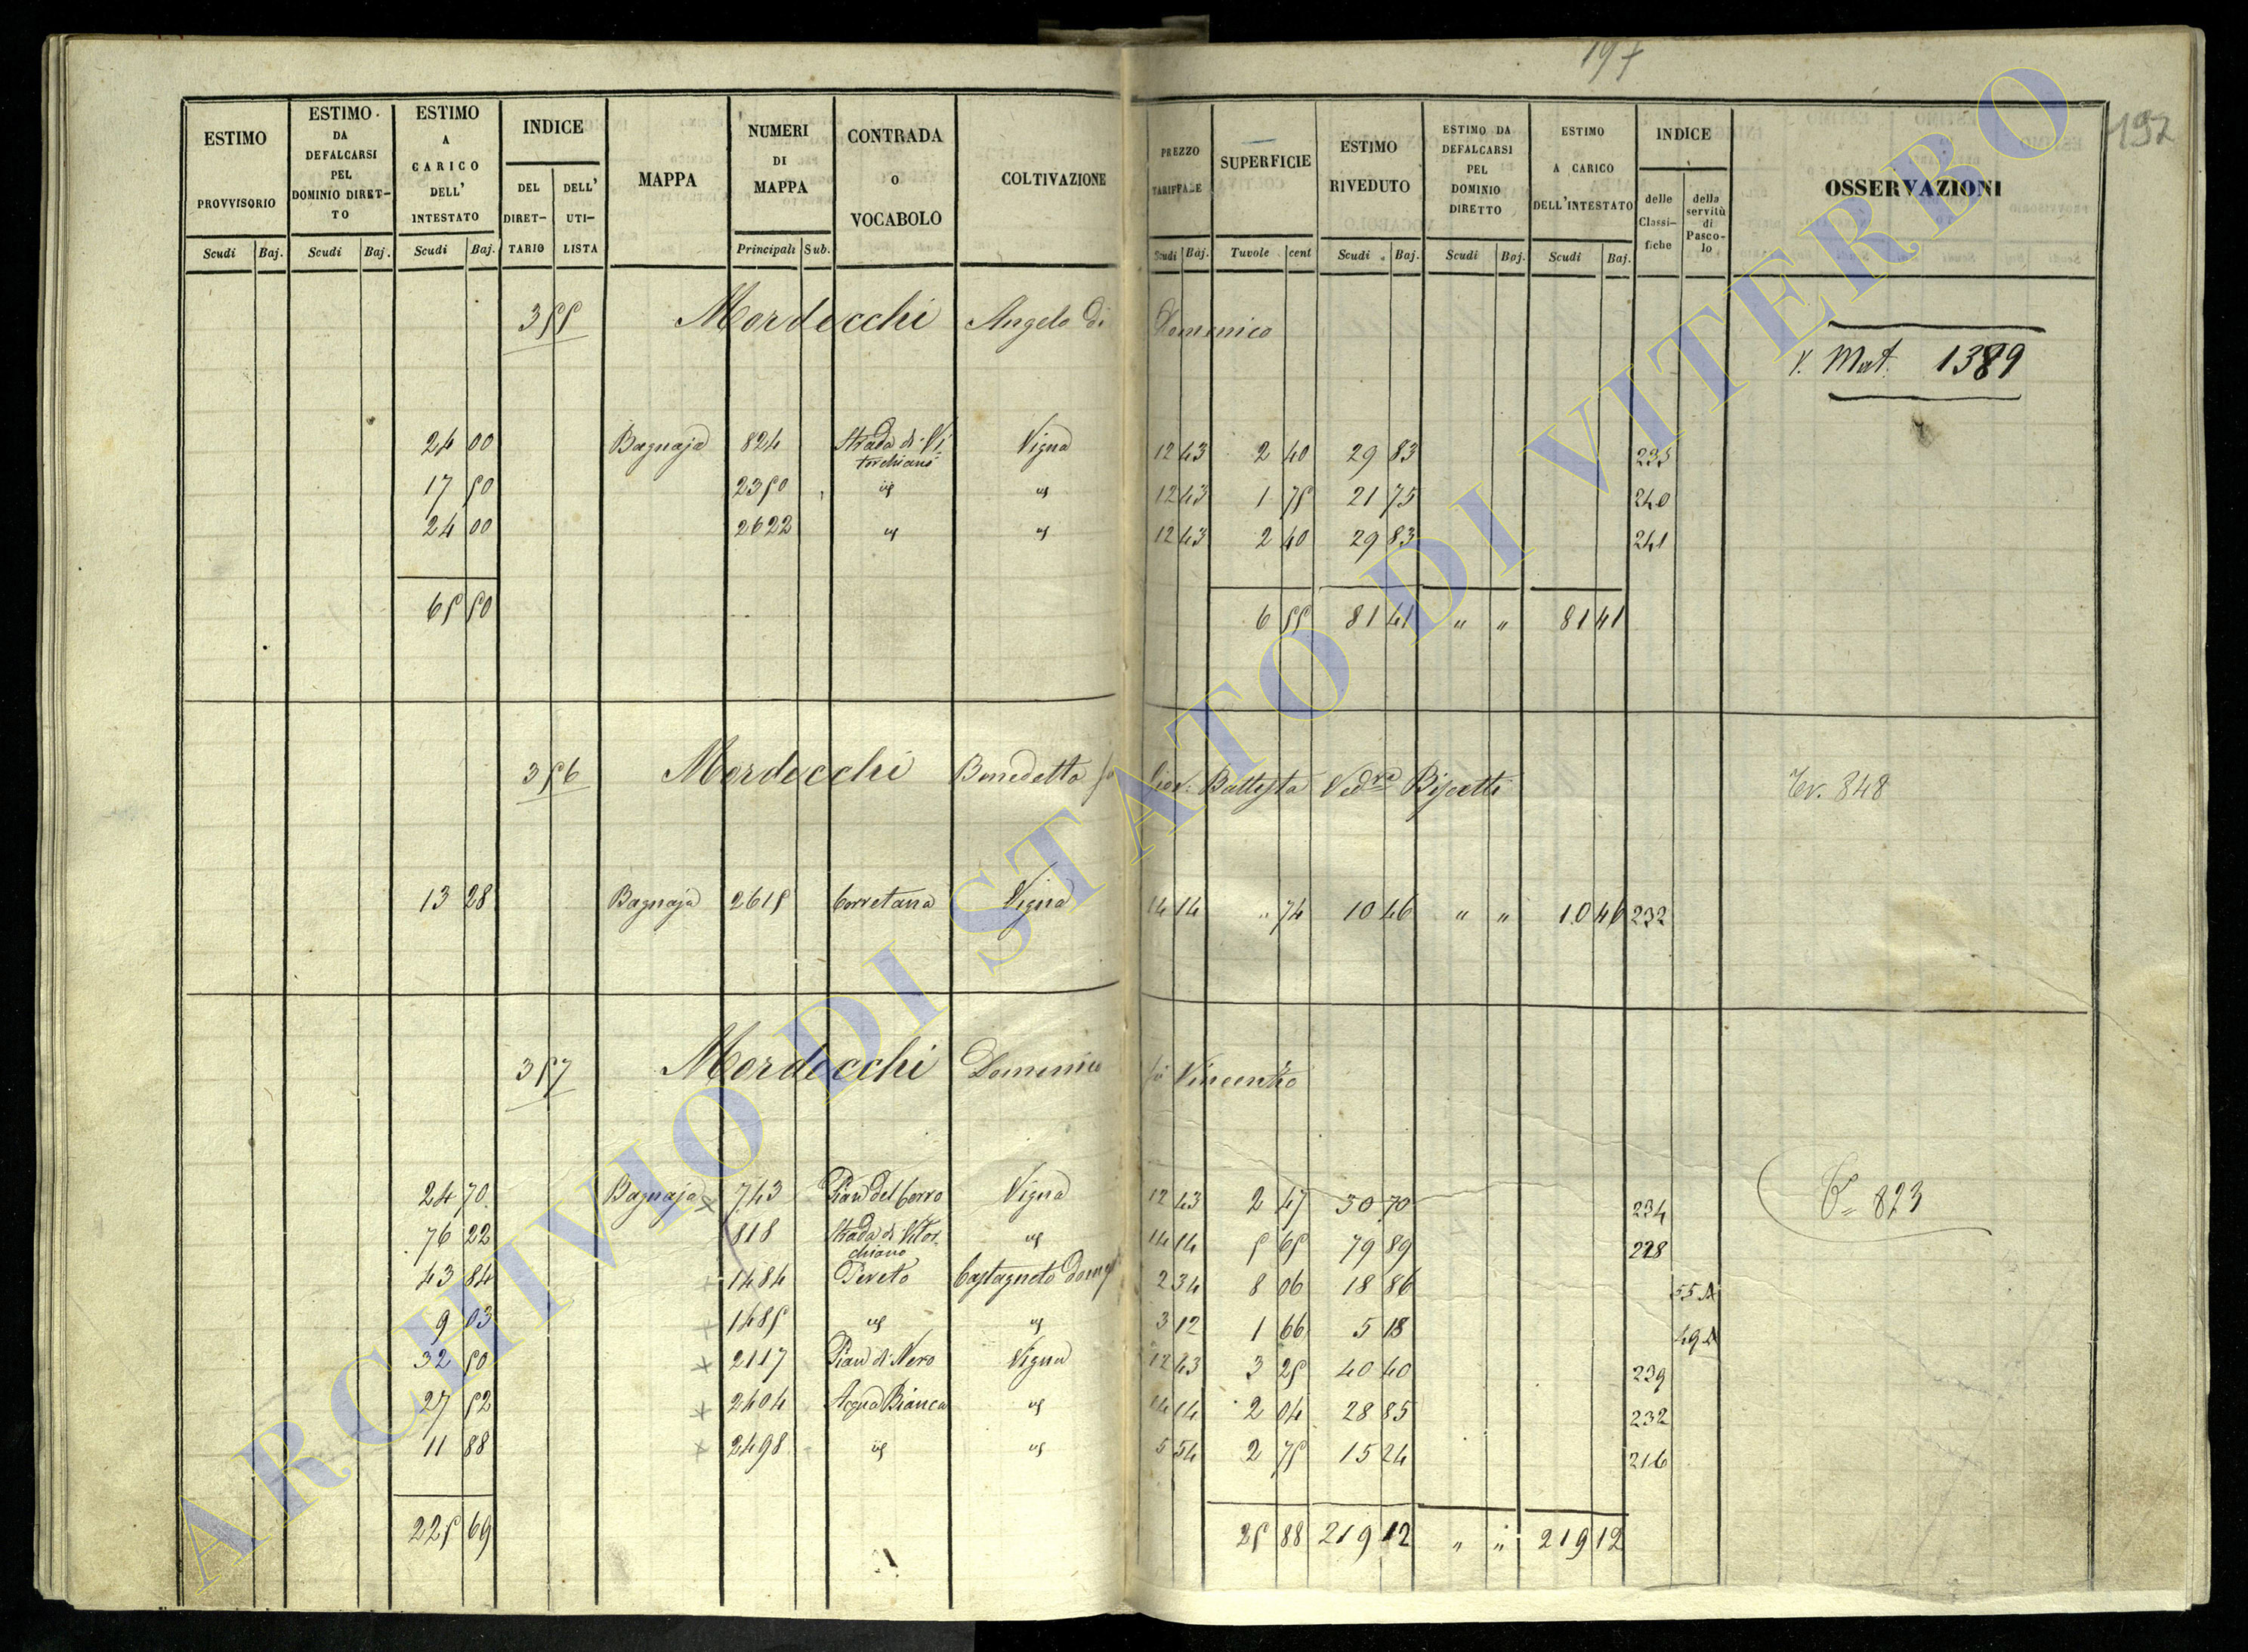 197
192
ESTIMO PROVVISORIO
ESTIMO DA DEFALCARSI PEL DOMINIO DIRETTO
ESTIMO A CARICO DELL' INTESTATO
INDICE
DEL DIRETTARIO
DELL' UTILISTA
MAPPA
NUMERI DI MAPPA
CONTRADA O VOCABOLO
COLTIVAZIONE
PREZZO TARIFFALE
SUPERFICIE
ESTIMO RIVEDUTO
ESTIMO DA DEFALCARSI PEL DOMINIO DIRETTO
ESTIMO A CARICO DELL'INTESTATO
INDICE
delle Classifiche
della servitù di Pascolo
OSSERVAZIONI
Scudi Baj. Scudi Baj. Scudi Baj. Principali Sub. Scudi Baj. Tavole cent Scudi Baj. Scudi Baj. Scudi Baj.
355 Mordecchi Angelo di Domenico
V. Mat. 1389
24 00 Bagnaja 824 Strada di Vitorchiano Vigna 12 43 2 40 29 83 235
17 50 2350 id id 12 43 1 75 21 75 240
24 00 2622 id id 12 43 2 40 29 83 241
65 50 6 55 81 41 " " 81 41
356 Mordecchi Benedetto fù Giov. Battista Ved.va Biscetti
Tr. 848
13 28 Bagnaja 2615 Corretana Vigna 14 14 " 74 10 46 " " 10 46 232
357 Mordecchi Domenico fù Vincenzo
823
24 70 Bagnaja 743 Pian del Cerro Vigna 12 43 2 47 30 70 234
76 22 818 Strada di Vitorchiano id 14 14 5 65 79 89 228
43 84 1484 Pereto Castagneto Dom 2 34 8 06 18 86 55 A
9 03 1485 id id 3 12 1 66 5 18 49 A
32 50 2117 Pian di Nero Vigna 12 43 3 25 40 40 239
27 52 2404 Acqua Bianca id 14 14 2 04 28 85 232
11 88 2498 id id 5 54 2 75 15 24 216
225 69 25 88 219 12 " " 219 12
ARCHIVIO DI STATO DI VITERBO